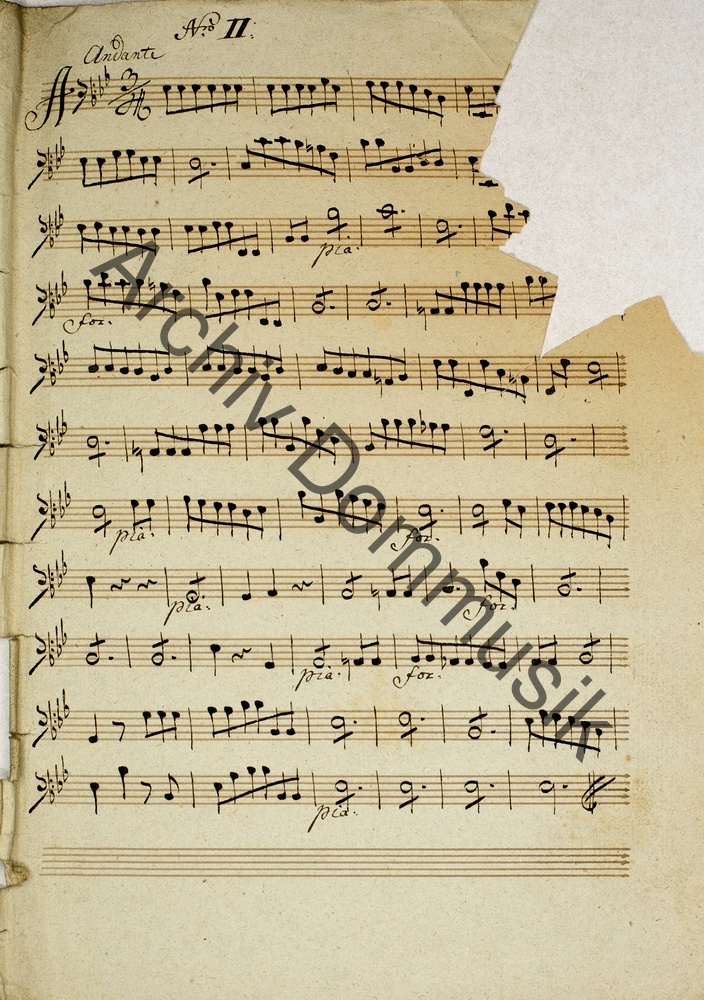 Nro II:
Andante
3/4
pia:
for:
pia:
for:
pia:
for:
pia:
for:
pia:
Archiv Dommusik